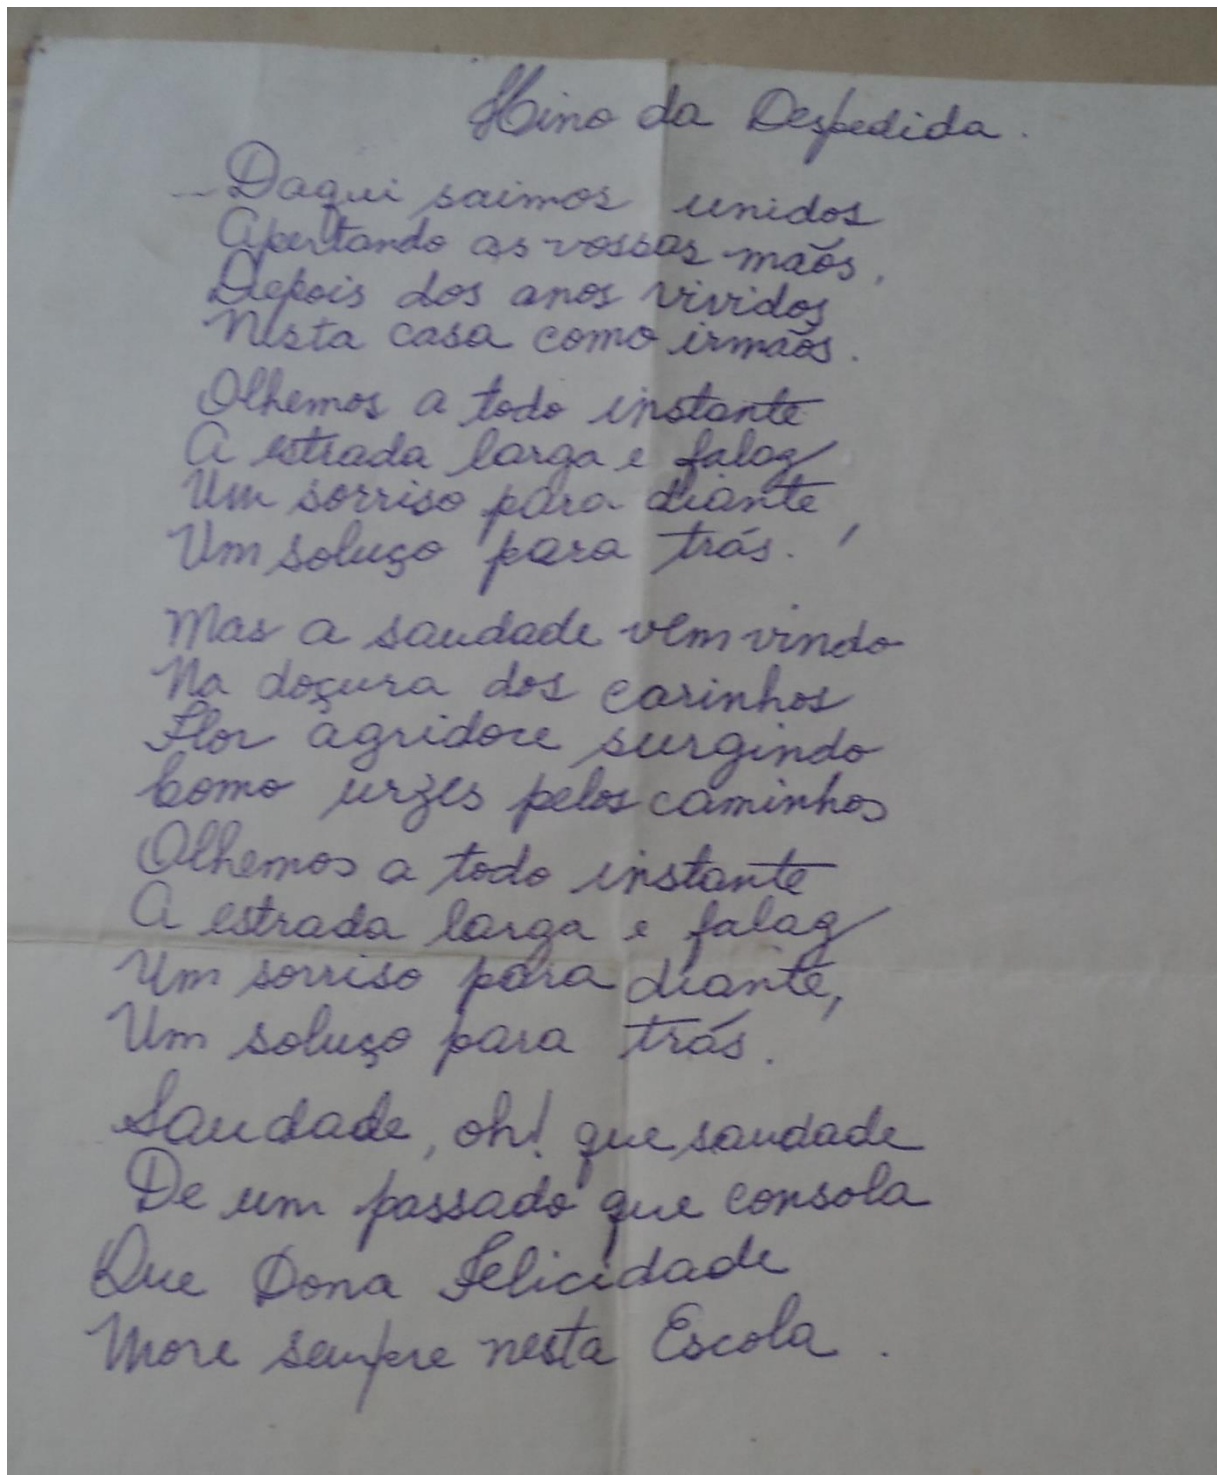 Hino da Despedida.
- Daqui saimos unidos
Apertando as vossas mãos,
Depois dos anos vividos
Nesta casa como irmãos.
Olhemos a todo instante
A estrada larga e falaz
Um sorriso para diante,
Um soluço para trás.
Mas a saudade vem vindo
Na doçura dos carinhos
Flor agridoce surgindo
Como urzes pelos caminhos
Olhemos a todo instante
A estrada larga e falaz
Um sorriso para diante,
Um soluço para trás.
Saudade, oh! que saudade
De um passado que consola
Que Dona Felicidade
More sempre nesta Escola.